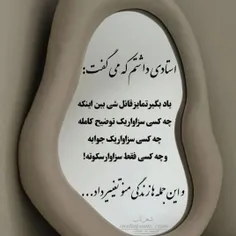 استادی داشتم که می گفت:
یاد بگیر تمایز قائل شی بین اینکه
چه کسی سزاوار یک توضیح کامله
چه کسی سزاوار یک جوابه
و چه کسی فقط سزاوار سکوته!
و این جمله ها زندگی منو تغییر داد...